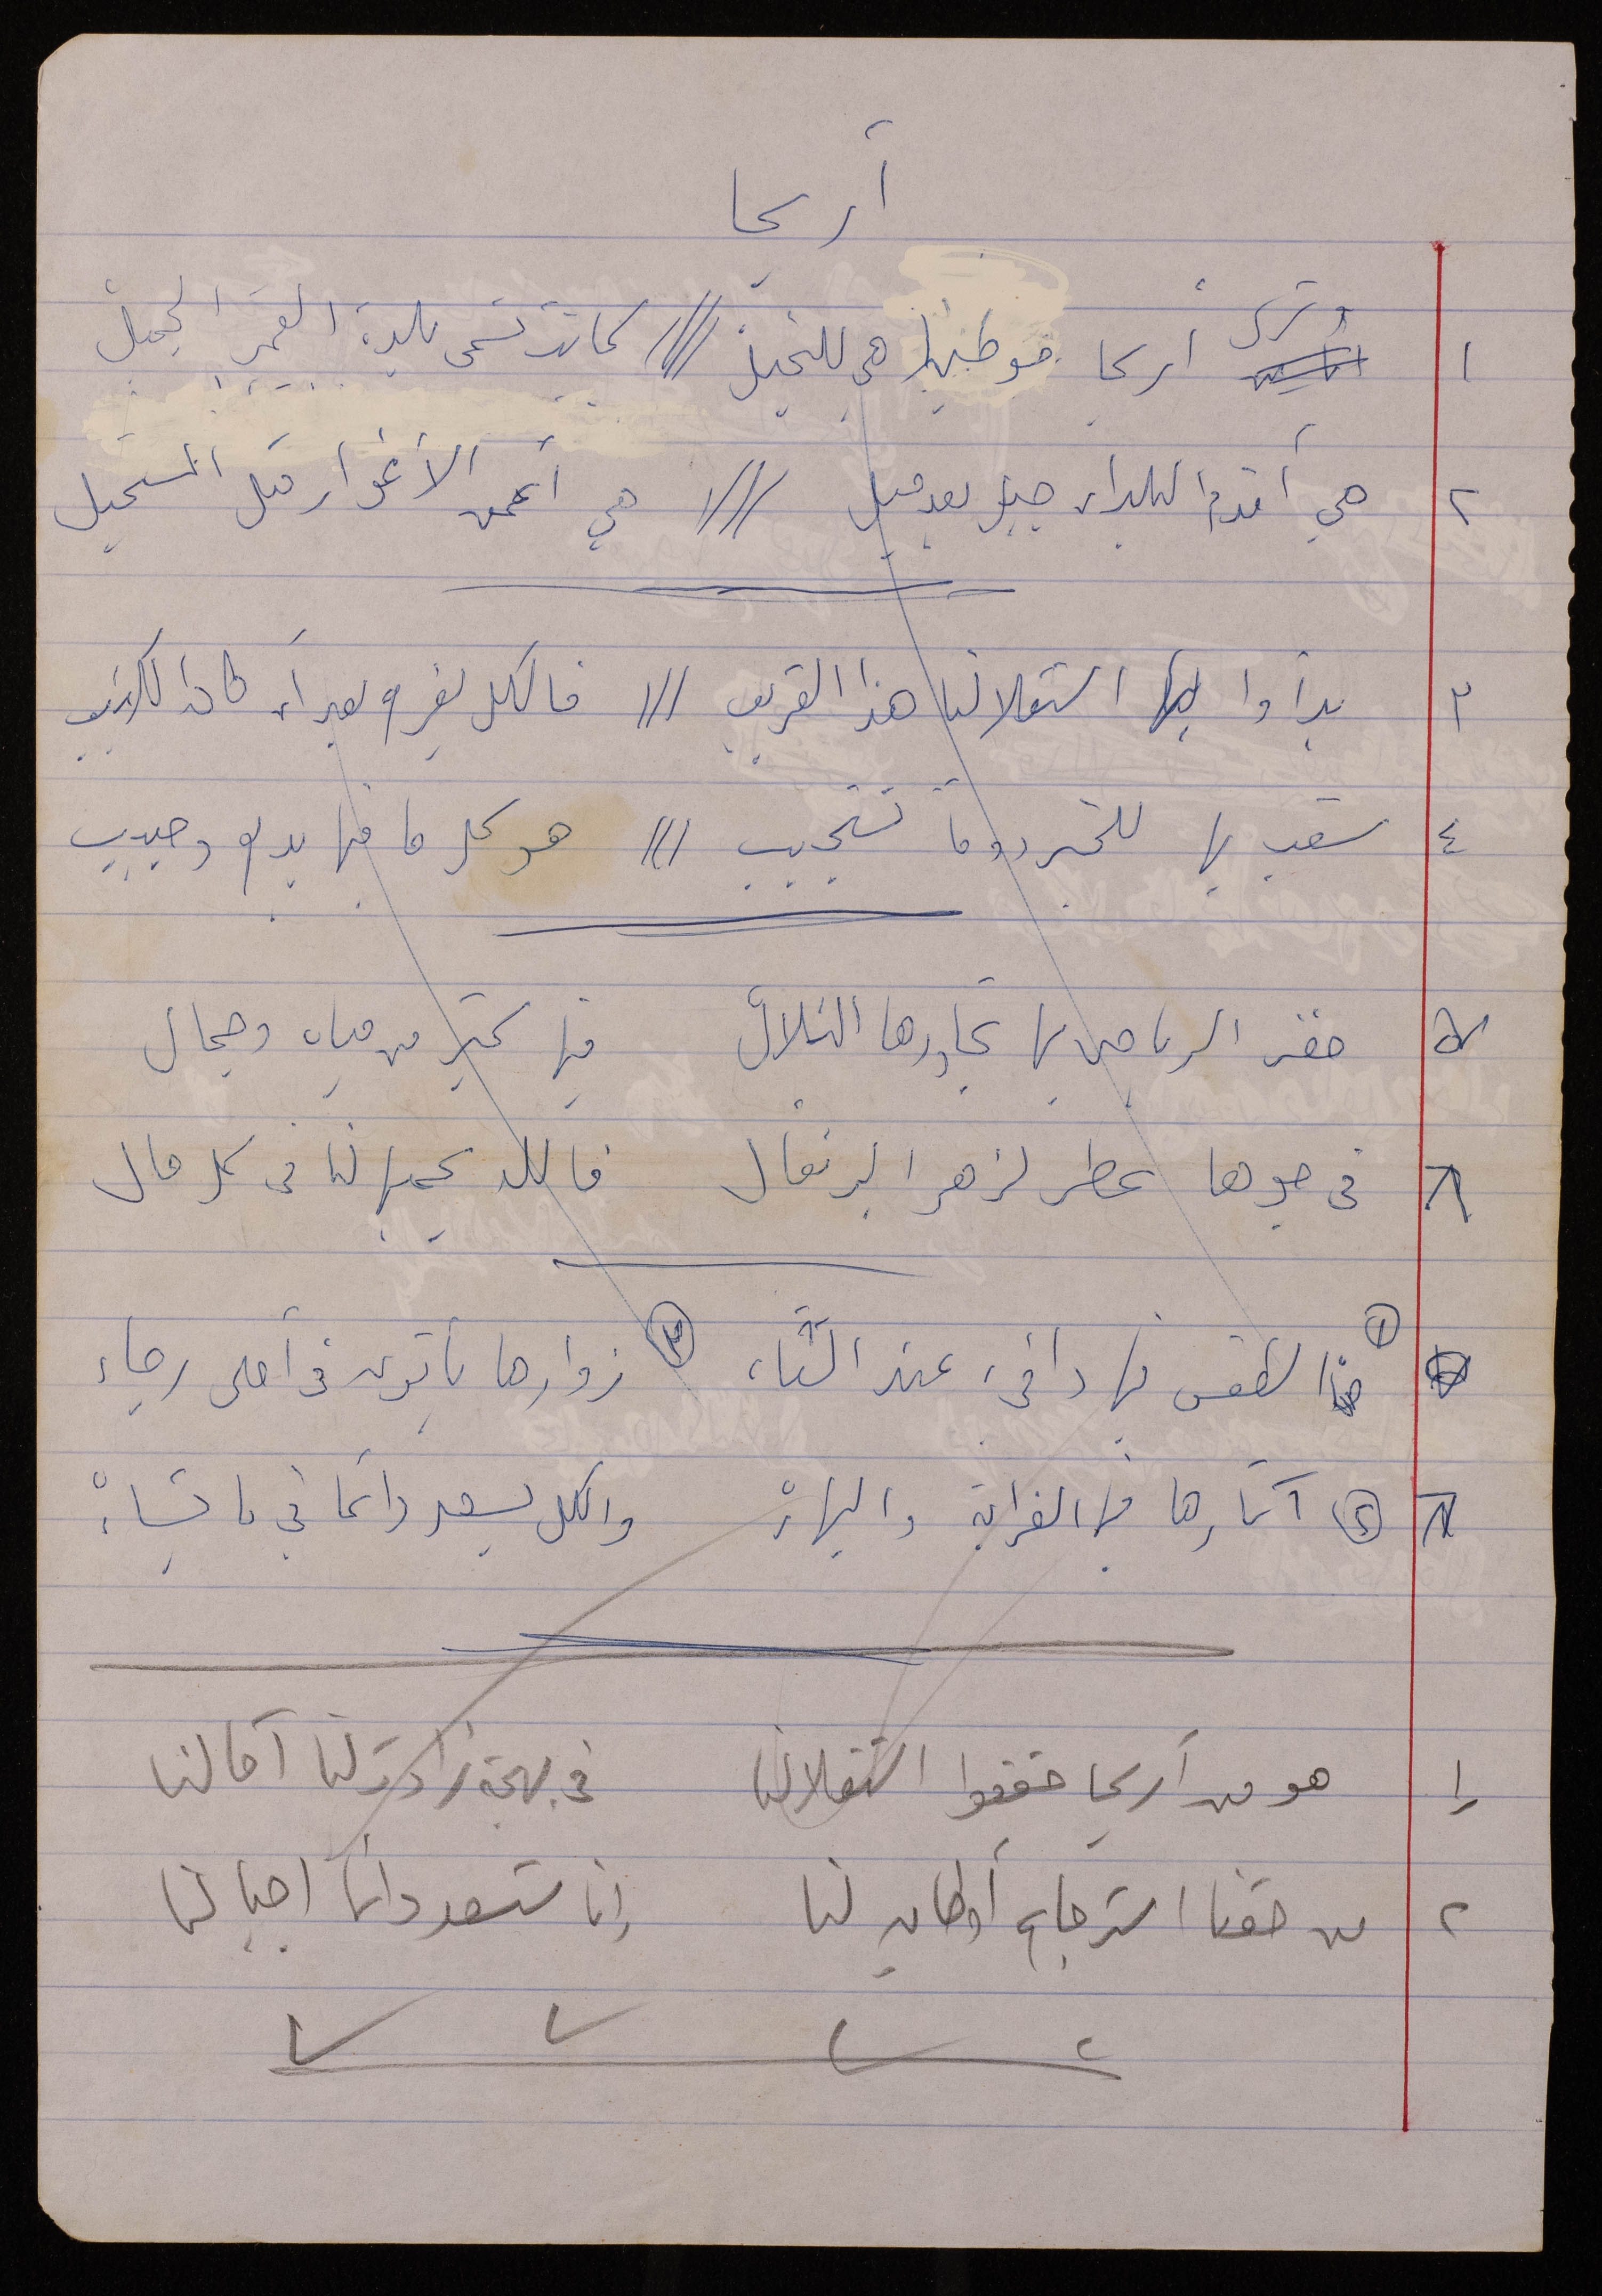 أريحا
١ وترى أريحا موطنها هي للنخيل /// كانت تسمى بلدة القمر الجميل
٢ هي أقدم البلدان جيل بعد جيل /// هي أعمق الأغوار مثل المستحيل
٣ بدأوا بها استقلالنا هذا القريب /// فالكل يفرح بعد أن كان الكئيب
٤ شعب بها للخير دوما تستجيب /// هو كل ما فيها بديع وحبيب
٥ خضر الرياض بها تجاورها التلال فيها كثير من مياه وجمال
٦ في جوها عطر لزهر البرتقال فالله يحميها لنا في كل حال
① الطقس فيها دافىء عند الشتاء ③ زوارها يأتون في أحلى رجاء
② آثارها فيها الغرابة والبهاء والكل يسعد دائما في ما تشاء
١ هو من أريحا حققوا استقلالنا في بهجة زادت لنا آمالنا
٢ من حقنا استرجاع أوطان لنا إنا سنسعد دائما أجيالنا